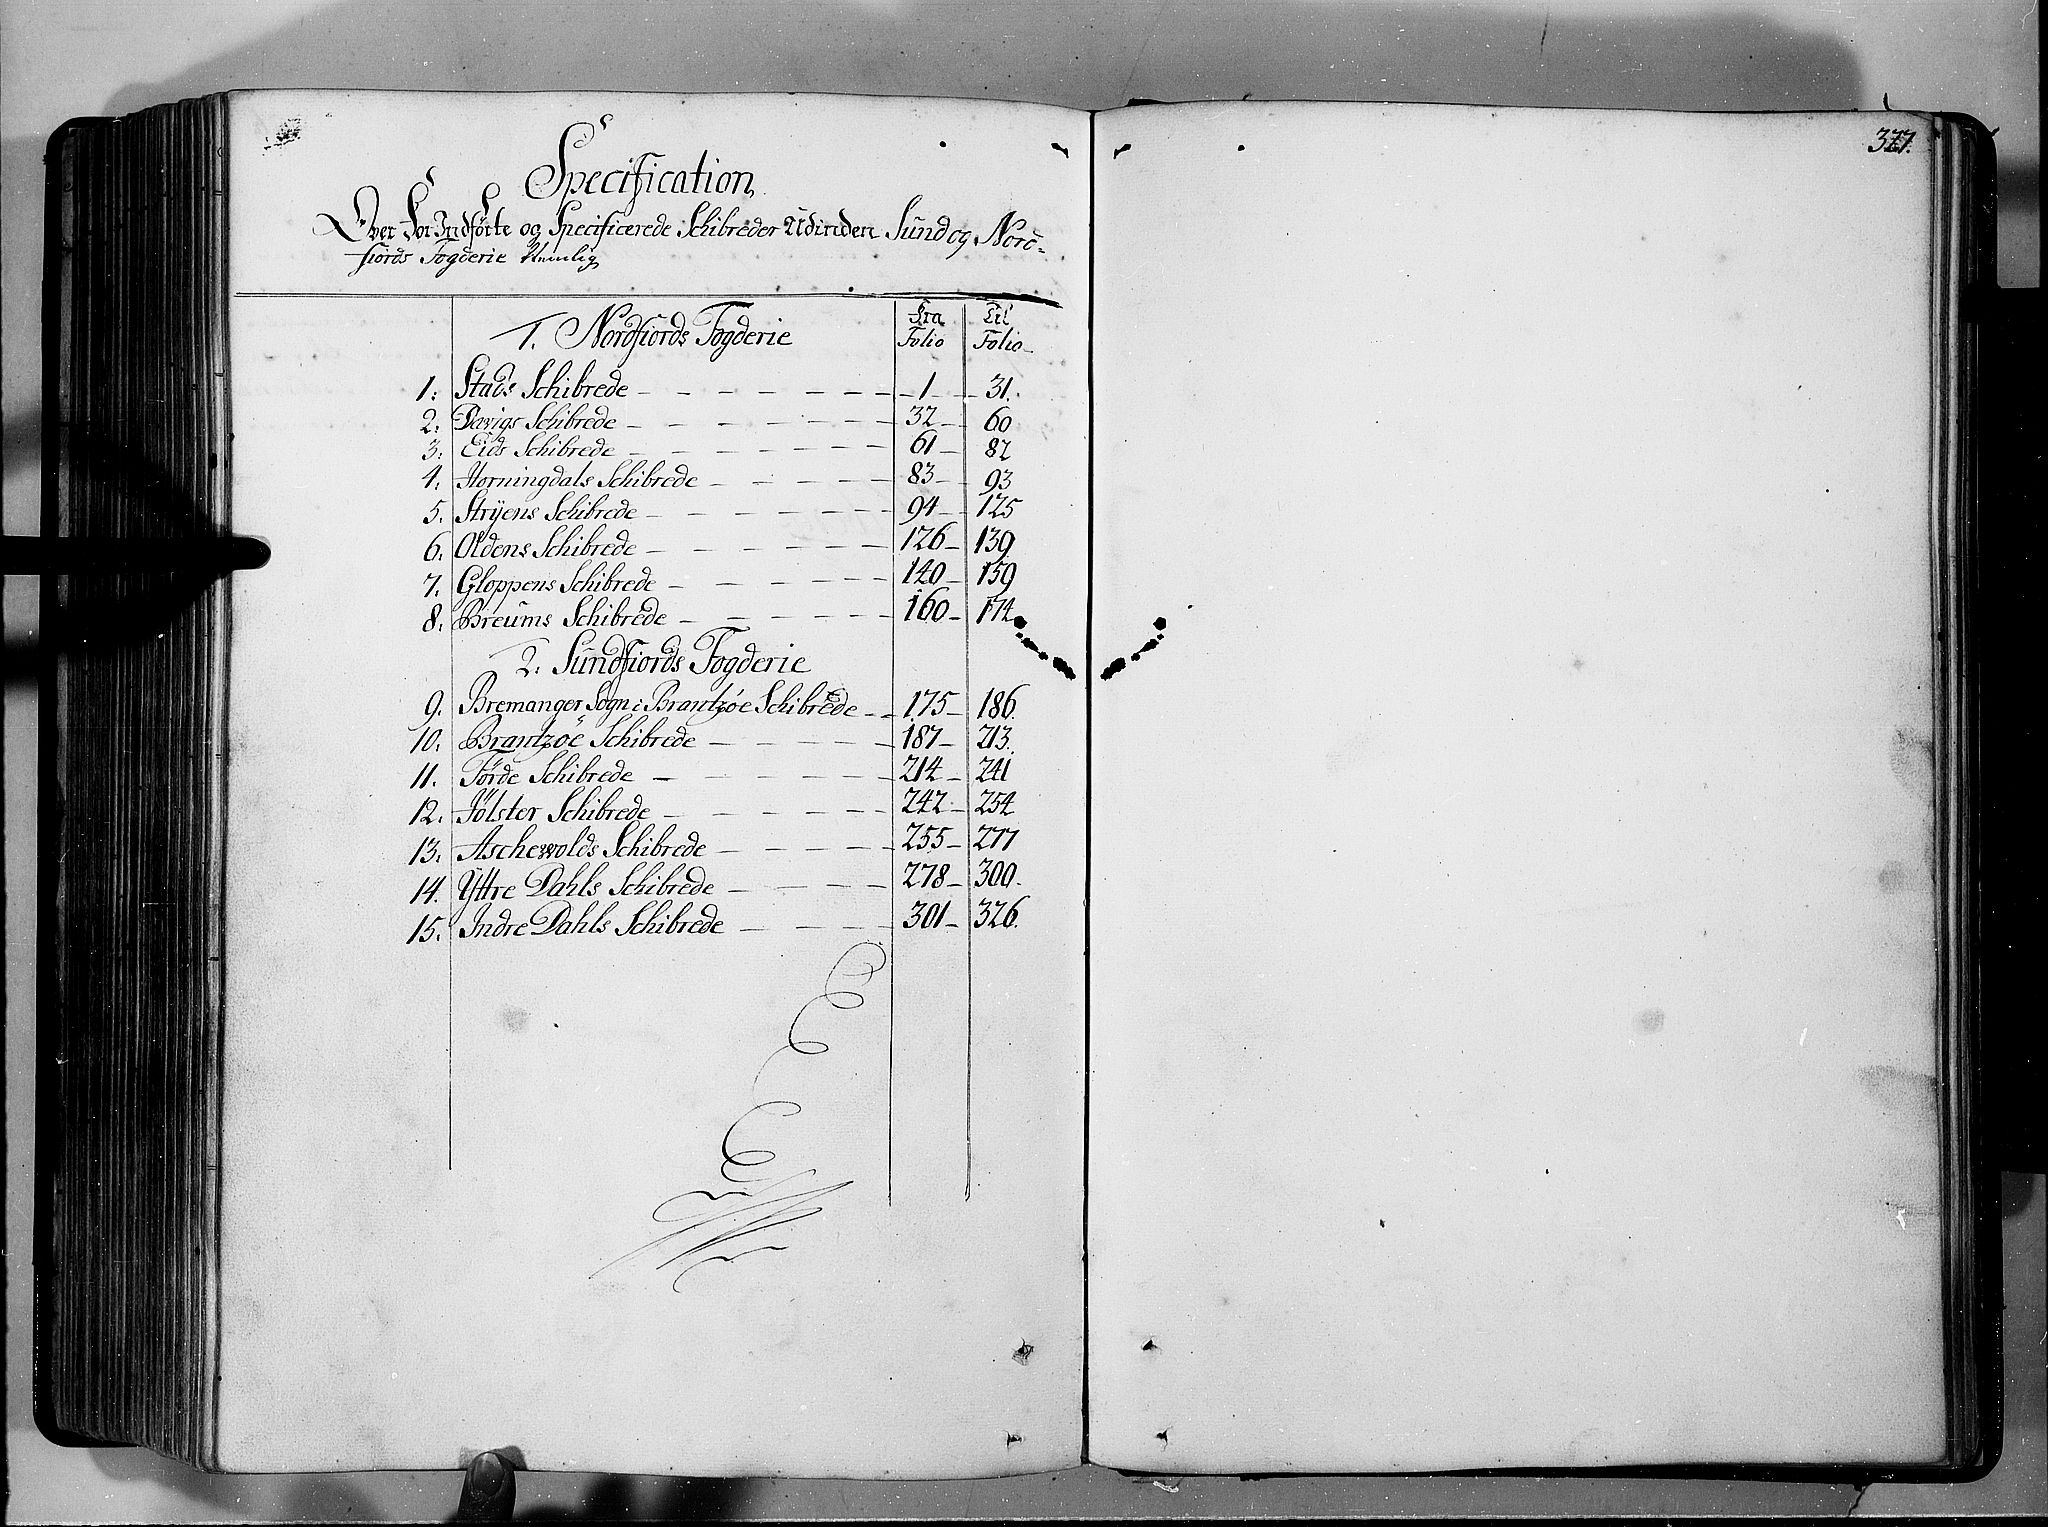 377.
Specification
Over For Indførte og Specificerede Schibreder Udinden Sund og Nord-
fiords Fogderie Nemlig
1. Nordfiords Fogderie Fra Folio Til Folio
1. Stads Schibrede 1 31.
2. Davigs Schibrede 32 60
3. Eids Schibrede 61 82
4. Horningdals Schibrede 83 93
5. Strÿens Schibrede 94 125
6. Oldens Schibrede 126 139
7. Gloppens Schibrede 140 159
8. Breums Schibrede 160 174
2. Sundfiords Fogderie
9. Bremanger Sogn i Brantzøe Schibrede 175 186.
10. Brantzøe Schibrede 187 213.
11. Førde Schibrede 214 241
12. Jølster Schibrede 242 254
13. Aschewolds Schibrede 255 277
14. Yttre Dahls Schibrede 278 300.
15. Indre Dahls Schibrede 301 326.